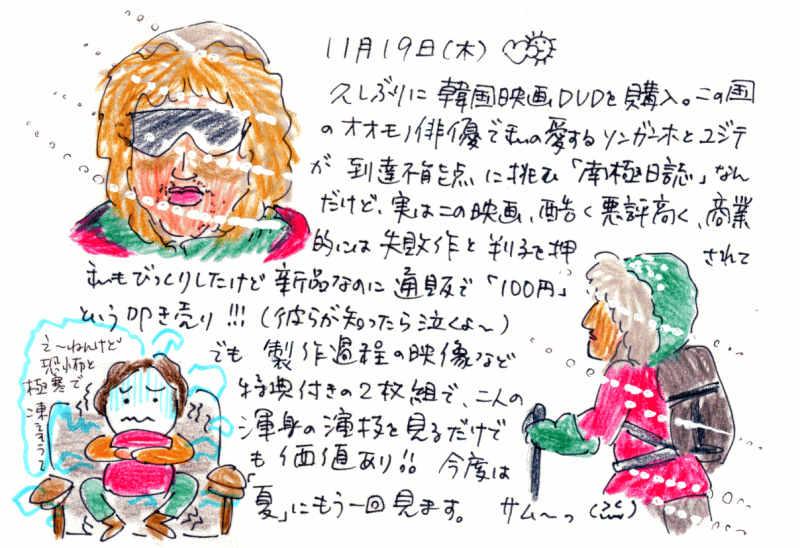 11月19日(木)
久しぶりに 韓国映画DVDを購入。この国
のオオモノ俳優で私の愛するソンガンホとユジテ
が 到達不能点に挑む「南極日誌」なん
だけど、実はこの映画、酷く悪評高く、商業
的には失敗作と判子を押されて
私もびっくりしたけど 新品なのに 通販で「100円」
という叩き売り!!!(彼らが知ったら泣くよ〜)
でも 製作過程の映像など
特典付きの2枚組で、二人の
渾身の演技を見るだけで
も価値あり!! 今度は
「夏」にもう一回見ます。 サム〜っ
え〜ねんけど
恐怖と
極寒で
凍えそうて